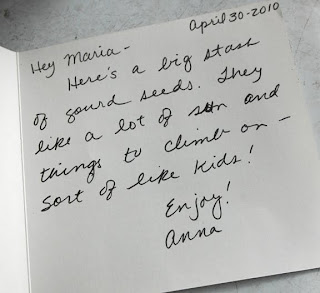 April 30-2010
Hey Maria-
Here's a big stash
of gourd seeds. They
like a lot of sun and
things to climb on -
sort of like kids!
Enjoy!
Anna